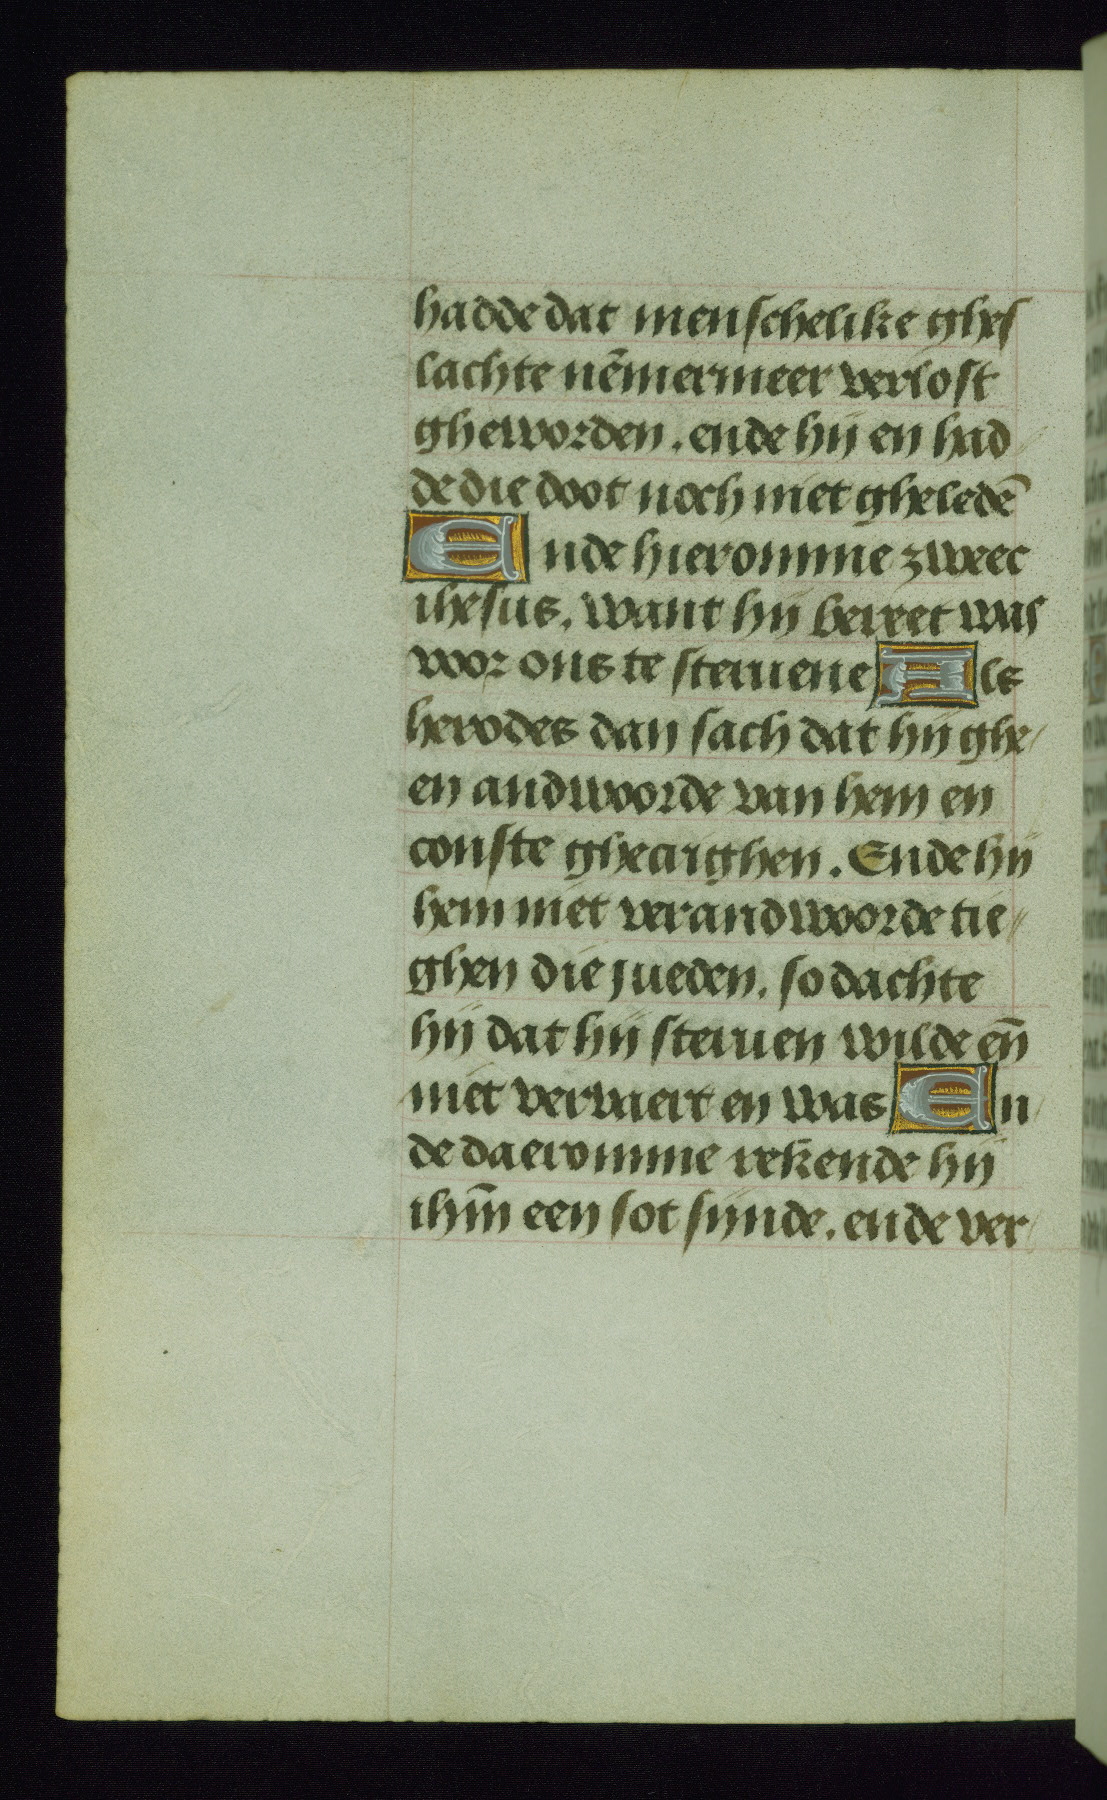 hadde dat menschelike ghes
lachte nēmermeer verlost
gheworden. ende hij en had
de die doot noch niet gheledē
Ende hieromme zweec
ihesus. want hij bereet was
voor ons te steruene Als
herodes dan sach dat hij ghe
en andwoorde van hem en
conste ghecrighen. Ende hij
hem niet verandwoorde tie
ghen die jueden. so dachte
hij dat hij steruen wilde eñ
niet vervaert en was En
de daeromme rekende hij
ihm̄ een sot sijnde. ende ver